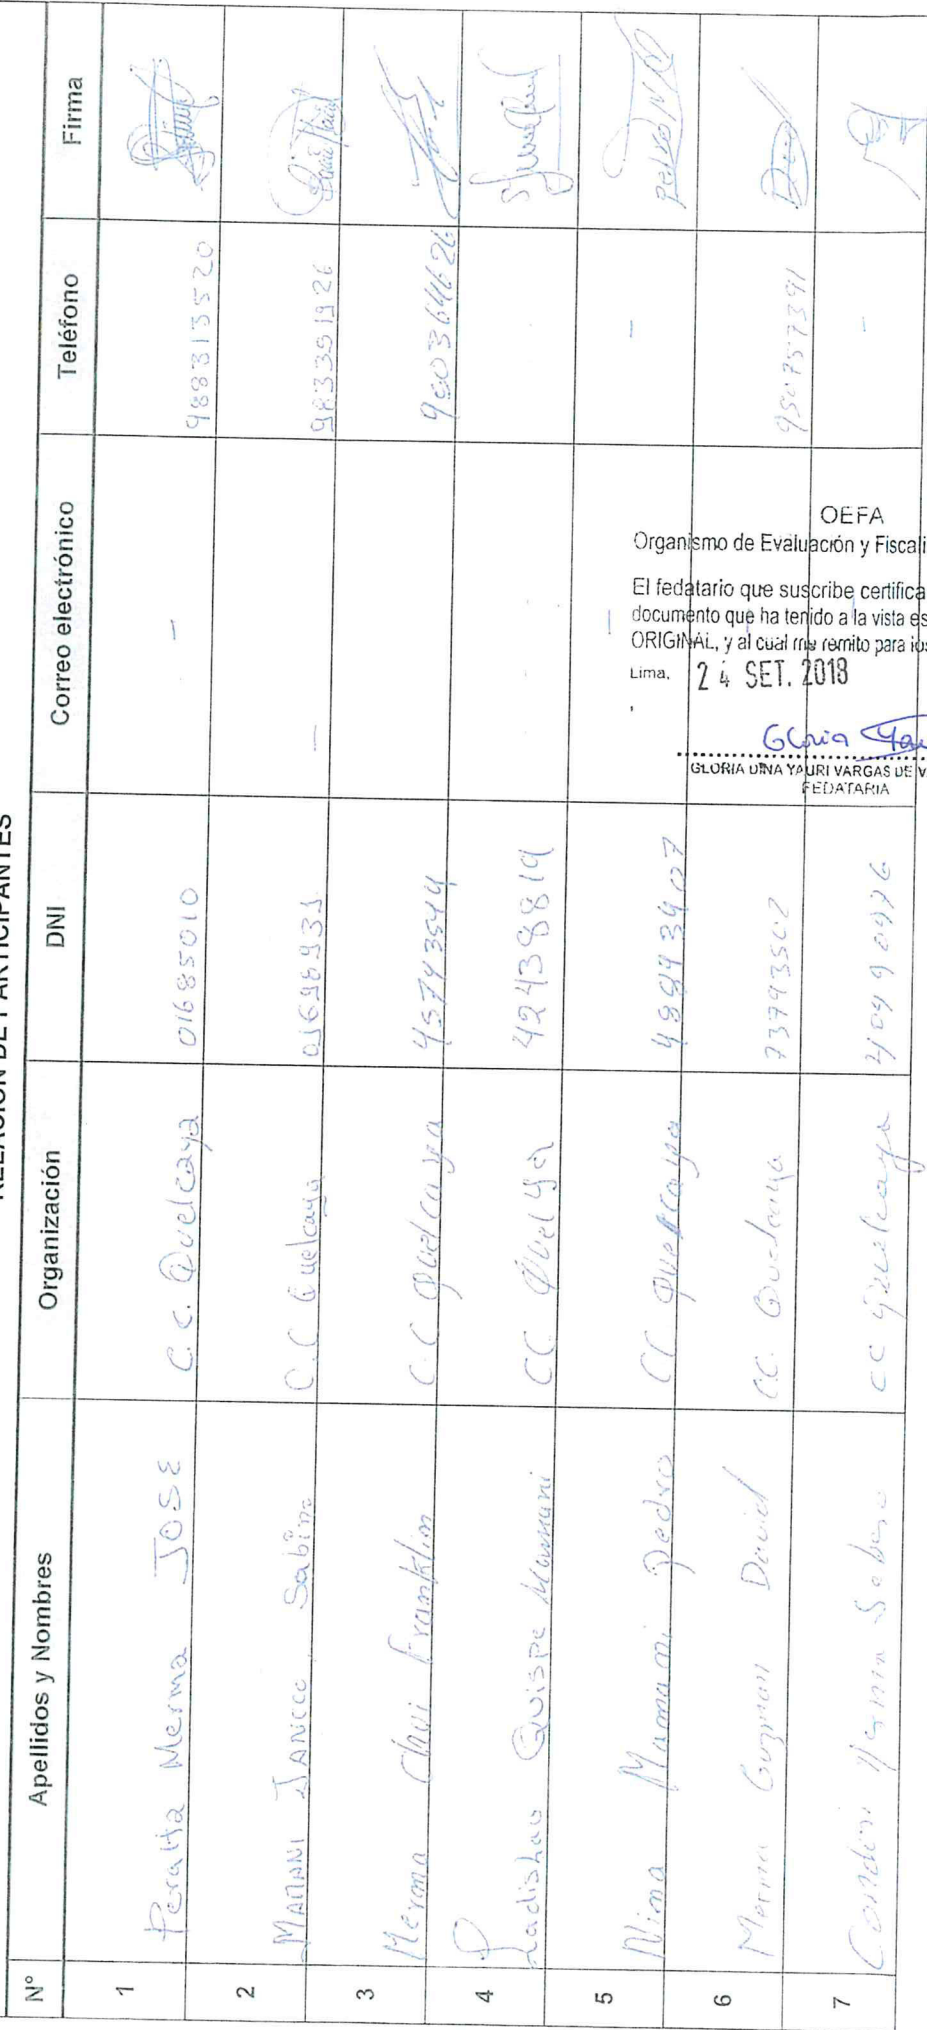 RELACIÓN DE PARTICIPANTES
N° Apellidos y Nombres Organización DNI Correo electrónico Teléfono Firma
1 Peralta Merma JOSE C.C. Quelcaya 01685010 - 988313520
2 MAMANI JANCCO Sabino C.C Quelcaya 01696931 - 983351926
3 Merma Chui Franklin C.C Quelcaya 45743544
4 Ladishao Quispe Mamani CC 42439819
5 Nina Mamani Pedro CC Quelcaya - - Pedro N M
6 Merma Guzman David CC. Quelcaya 73793502 950757391 David
7 Condori CC Quelcaya -
OEFA
Organismo de Evaluación y Fiscali
El fedatario que suscribe certifica
documento que ha tenido a la vista es
ORIGINAL, y al cual me remito para los
Lima, 24 SET. 2018
Gloria
GLORIA DINA YAURI VARGAS DE V
FEDATARIA